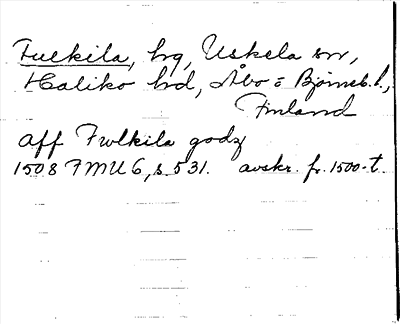 Fulkila, hg, Uskela sn,
Haliko hd, Åbo o Björneb. l.,
Finland
aff Fwlkila godz
1508 FMU 6, s. 531. avskr. fr. 1500-t.